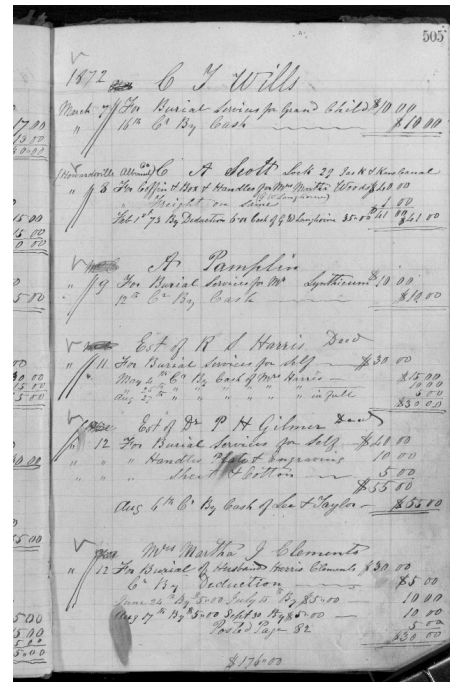 505
1872 C T Wills
March 7 For Burial Services for Grand Child $10.00
" 16th Cr By Cash $10.00
(Howardsville Albemarle Co) C A Scott Lock 29 Jas R & Kana Canal
" 8 For Coffin & Box & Handles for Mrs Martha Woods $40.00
" Freight on Same 1.00
Feb 1st 73 By Deduction 6.00 Cash of G W Langhorne 35.00 $41.00 $41.00
A Pamplin
" 9 For Burial Services for Mr Lynthicum $10.00
" 12th Cr By Cash $10.00
Est of R S Harris Decd
" 11 For Burial Services for Self $30.00
May 4th Cr By Cash of Mrs Harris $15.00
" 25th " " " " " 10.00
Aug 27th " " " " " in full 5.00
$30.00
Est of Dr P H Gilmer Decd
" 12 For Burial Services for Self $40.00
" " " Handles Plate & Engraving 10.00
" " " Sheet & Cotton 5.00
$55.00
Aug 6th Cr By Cash of Lee & Taylor $55.00
Mrs Martha J Clements
" 12 For Burial of Husband Harris Clements $30.00
Cr By Deduction $5.00
June 24th By $5.00 July 15th By $5.00 10.00
Aug 17th By $5.00 Sept 30 By $5.00 10.00
Posted Page 82 5.00
$30.00
$176.00